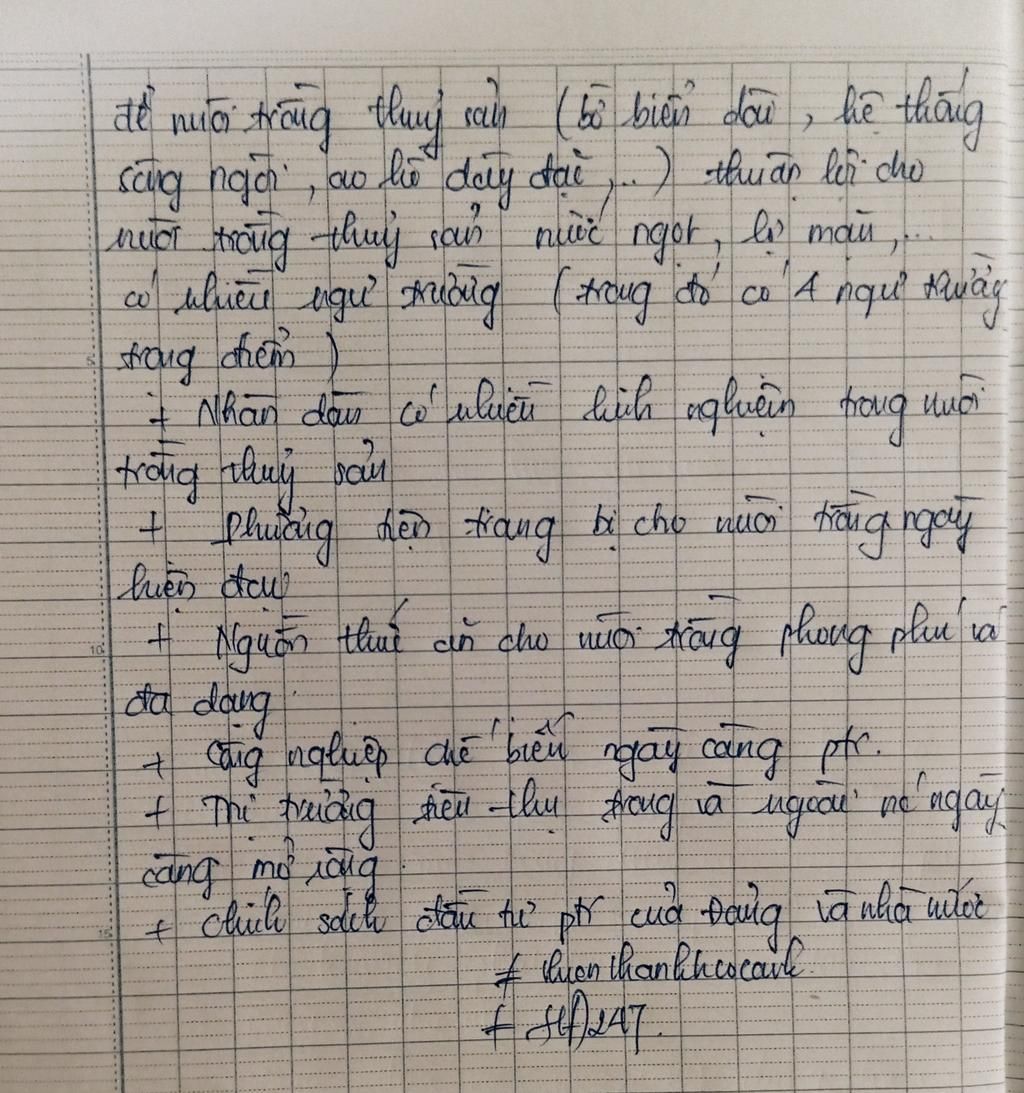 để nuôi trồng thuỷ sản (bờ biển dài, hệ thống
sông ngòi, ao hồ dày đặc,...) thuận lợi cho
nuôi trồng thuỷ sản nước ngọt, lợ mặn,...
có nhiều ngư trường (trong đó có 4 ngư trường
trọng điểm)
+ Nhân dân có nhiều kinh nghiệm trong nuôi
trồng thuỷ sản
+ Phương tiện trang bị cho nuôi trồng ngày
hiện đại
+ Nguồn thức ăn cho nuôi trồng phong phú và
đa dạng.
+ Công nghiệp chế biến ngày càng ptr.
+ Thị trường tiêu thụ trong và ngoài nc ngày
càng mở rộng.
+ Chính sách đầu tư ptr của Đảng và nhà nước
247.